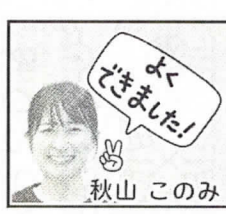 よく
できました!
秋山 このみ